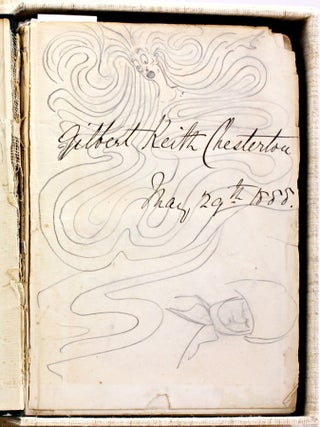 Gilbert Keith Chesterton
May 29th 1888.